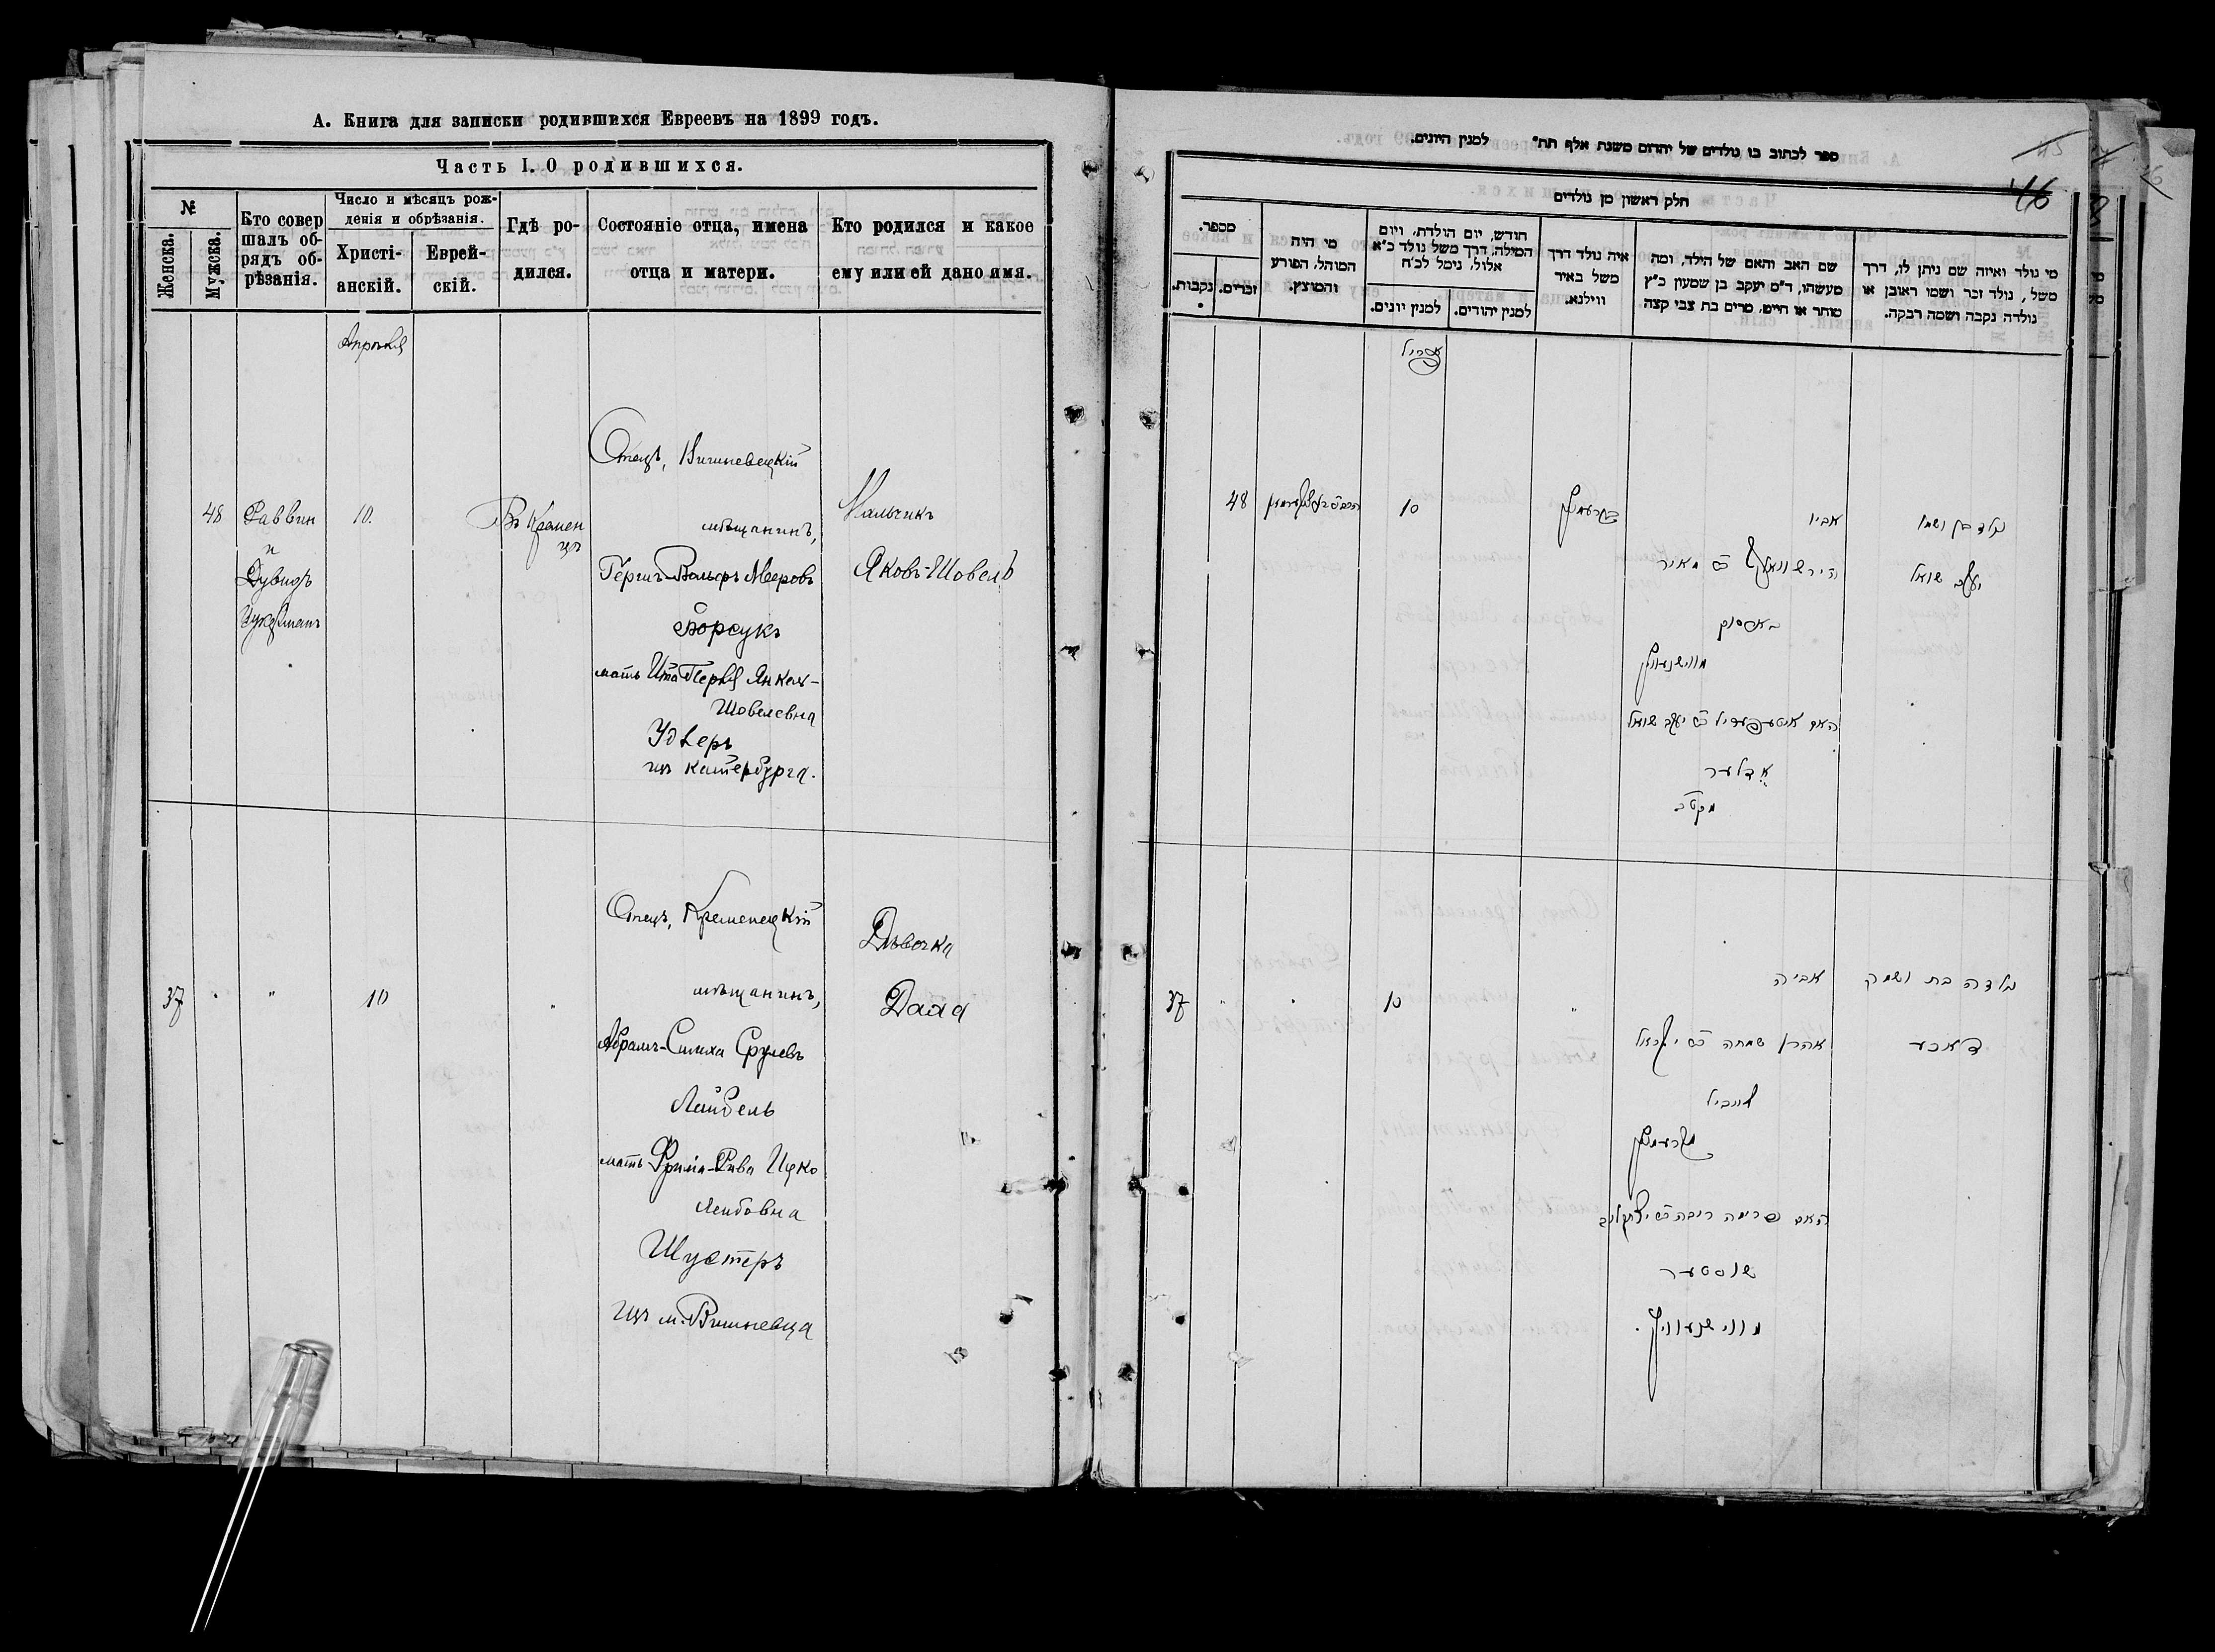 А. Книга для записки родившихся Евреевъ на 1899 годъ.
Часть I. О родившихся.
№
Женска.
Мужска.
Кто совер
шалъ об-
рядъ об-
рѣзанія.
Число и мѣсяцъ рож-
денія и обрѣзанія.
Христі-
анскій.
Еврей-
скій.
Гдѣ ро-
дился.
Состояніе отца, имена
отца и матери.
Кто родился и какое
ему или ей дано имя.
Апрѣля
48
Раввин
и
Дувидъ
10.
Въ Кремен
цѣ
Отецъ, Вишневецкій
мѣщанинъ,
Гершъ-Вольфъ Мееровъ
Борсукъ
мать Ита Перля Янкель-
Шовелевна
Удлеръ
изъ Катербурга.
Мальчикъ
Яковъ-Шовель
37
"
10
"
Отецъ, Кременецкій
мѣщанинъ,
Абрамъ-Симха Срулевъ
Лайбель
мать Фрима-Рива Ицко
Лейбовна
Шустеръ
изъ м. Вишневца
Дѣвочка
ספר לכתוב בו נולדים של יהדום משנת אלף תת״ למנין היונים.
45
46
חלק ראשון מן נולדים
מספר.
נקבות.
זכרים.
מי היה
המוהל, הפורע
והמוצץ.
חודש, יום הולדת, ויום
המילה, דרך משל נולד כ״א
אלול, נימל לכ״ח
למנין יונים.
למנין יהודים.
איה נולד דרך
משל באיר
ווילנא.
שם האב והאם של הילד, ומה
מעשהו, ד״מ יעקב בן שמעון כ״ץ
סוחר או חייט, מרים בת צבי קצה
מי נולד ואיזה שם ניתן לו, דרך
משל, נולד זכר ושמו ראובן או
נולדה נקבה ושמה רבקה.
אפריל
48
10
בקרעמניץ
אביו
הירש וואלף ב״ר מאיר
באסוק
מווישנעוויץ
האם איטע פעריל ב״ר יעקב שואל
אדלער
נולד בן ושמו
יעקב שואל
37
"
10
"
אביה
שמחה ב״ר ישראל
לייביל
מקרעמניץ
האם פרימה ריבה ב״ר
שוסטער
מווישנעוויץ.
נולדה בת ושמה